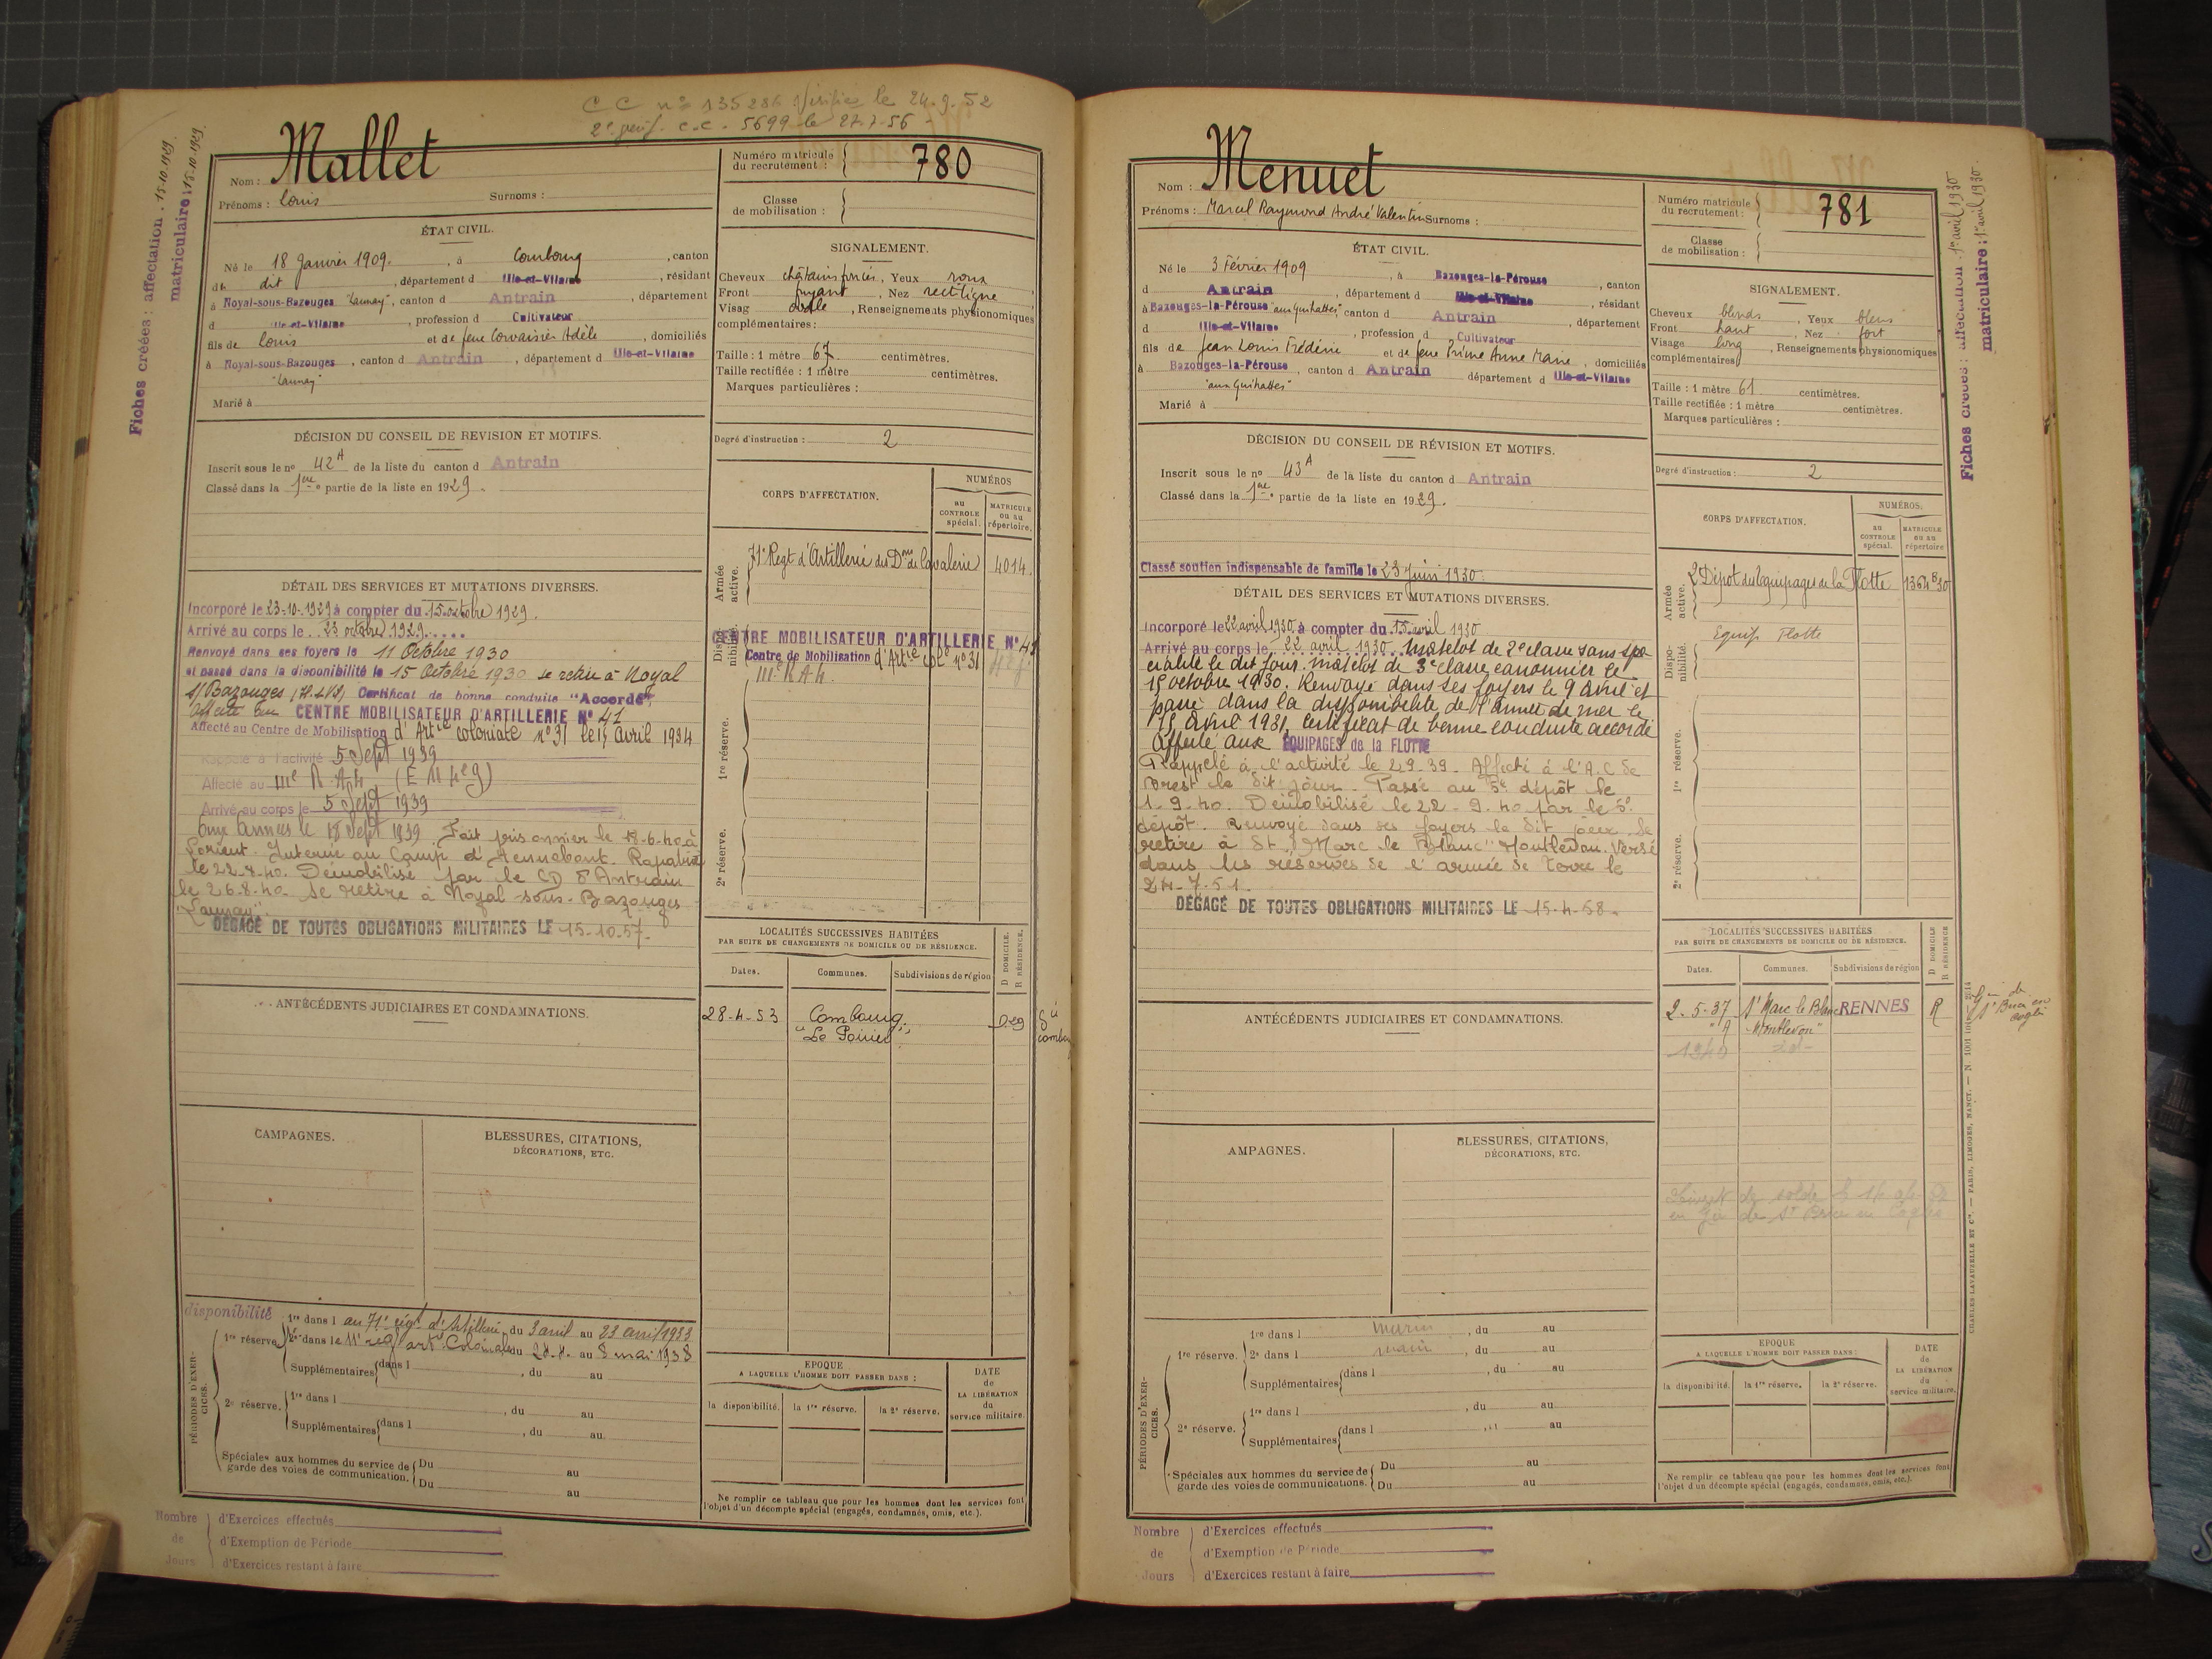 C C n° 135284 Vérifiée le 24.9.52
C.C. 5699 le 27-7-56
Fiches créées : affectation : 15-10-1929
matriculaire : 15-10-1929
Nom : Mallet
Prénoms : Louis Surnoms :
ÉTAT CIVIL.
Né le 18 Janvier 1909. , à Combourg , canton
du dit , département d Ille-et-Vilaine , résidant
à Noyal-sous-Bazouges "Launay" , canton d Antrain , département
d Ille-et-Vilaine , profession d Cultivateur
fils de Louis et de feue Corvaisier Adèle , domiciliés
à Noyal-sous-Bazouges , canton d Antrain , département d Ille-et-Vilaine
"Launay"
Marié à
DÉCISION DU CONSEIL DE REVISION ET MOTIFS.
Inscrit sous le n° 42 A de la liste du canton d Antrain
Classé dans la 1ère partie de la liste en 1929.
DÉTAIL DES SERVICES ET MUTATIONS DIVERSES.
Incorporé le 23-10-1929 à compter du 15 octobre 1929.
Arrivé au corps le 23 octobre 1929
Renvoyé dans ses foyers le 11 Octobre 1930
et passé dans la disponibilité le 15 Octobre 1930 se retire à Noyal
s/Bazouges (I.&V) Certificat de bonne conduite "Accordé"
Affecté au CENTRE MOBILISATEUR D'ARTILLERIE N° 41
Affecté au Centre de Mobilisation d'Artie coloniale n°31 le 15 avril 1934
Rappelé à l'activité 5 Sept 1939
Affecté au IIIe R.A.H.
Arrivé au corps le 5 Sept 1939
aux Armées le 18 Sept 1939. Fait prisonnier le 18-6-40 à
Lorient. Interné au Camp d'Hennebont. Rapatrié
le 22-8-40. Démobilisé par le CD d'Antrain
le 26-8-40 se retire à Noyal-sous-Bazouges
"Launay".
DÉGAGÉ DE TOUTES OBLIGATIONS MILITAIRES LE 15-10-57-
ANTÉCÉDENTS JUDICIAIRES ET CONDAMNATIONS.
CAMPAGNES.
BLESSURES, CITATIONS,
DÉCORATIONS, ETC.
disponibilité
PÉRIODES D'EXERCICES.
1re réserve. 1re dans l au 71e régt d'Artillerie, du 3 avril au 23 avril 1933
2e dans le 11e rég art Coloniale du au 8 mai 1938
Supplémentaires dans l , du au
2e réserve. 1re dans l , du au
Supplémentaires dans l , du au
Spéciales aux hommes du service de garde des voies de communication. Du au
Du au
Nombre de Jours
d'Exercices effectués
d'Exemption de Période
d'Exercices restant à faire
Numéro matricule du recrutement : 780
Classe de mobilisation :
SIGNALEMENT.
Cheveux châtains foncés, Yeux roux
Front fuyant , Nez rectiligne
Visage ovale , Renseignements physionomiques
complémentaires :
Taille : 1 mètre 67 centimètres.
Taille rectifiée : 1 mètre centimètres.
Marques particulières :
Degré d'instruction : 2
CORPS D'AFFECTATION.
NUMÉROS
au CONTROLE spécial.
MATRICULE ou au répertoire.
Armée active. 71e Regt d'Artillerie des Dons de Cavalerie 4014.
Disponibilité. CENTRE MOBILISATEUR D'ARTILLERIE N° 41
Centre de Mobilisation d'Artie Cole n°31
IIIe R.A.H.
1re réserve.
2e réserve.
LOCALITÉS SUCCESSIVES HABITÉES
PAR SUITE DE CHANGEMENTS DE DOMICILE OU DE RÉSIDENCE.
Dates. Communes. Subdivisions de région D DOMICILE. R RÉSIDENCE.
28-4-53 Combourg
EPOQUE
A LAQUELLE L'HOMME DOIT PASSER DANS :
la disponibilité. la 1re réserve. la 2e réserve.
DATE de LA LIBÉRATION du service militaire.
Ne remplir ce tableau que pour les hommes dont les services font
l'objet d'un décompte spécial (engagés, condamnés, omis, etc.).
Nom : Menuet
Prénoms : Marcel Raymond André Valentin Surnoms :
ÉTAT CIVIL.
Né le 3 Février 1909 , à Bazouges-la-Pérouse , canton
d Antrain , département d Ille-et-Vilaine , résidant
à Bazouges-la-Pérouse , canton d Antrain , département
d Ille-et-Vilaine , profession d Cultivateur
fils de Jean Louis Frédéric et de feue Prime Anne Marie , domiciliés
à Bazouges-la-Pérouse , canton d Antrain département d Ille-et-Vilaine
Marié à
DÉCISION DU CONSEIL DE RÉVISION ET MOTIFS.
Inscrit sous le n° 43 A de la liste du canton d Antrain
Classé dans la 1ère partie de la liste en 1929.
Classé soutien indispensable de famille le 23 Juin 1930.
DÉTAIL DES SERVICES ET MUTATIONS DIVERSES.
Incorporé le 22 avril 1930 à compter du 15 avril 1930
Arrivé au corps le 22 avril 1930. Matelot de 2e classe sans spé
cialité le dit jour. Matelot de 3e classe canonnier le
15 octobre 1930. Renvoyé dans ses foyers le 9 avril et
passé dans la disponibilité de l'armée de mer le
15 Avril 1931, certificat de bonne conduite accordé
Affecté aux ÉQUIPAGES de la FLOTTE
Rappelé à l'activité le 2.9.39. Affecté à l'A.C. de
Brest le dit jour. Passé au 5e dépôt le
1-9-40. Démobilisé le 22-9-40 par le 5e
dépôt. Renvoyé dans ses foyers le dit jour. Se
retire à St Marc le Blanc "Montlevon. Versé
dans les réserves de l'armée de terre le
24-7-51.
DÉGAGÉ DE TOUTES OBLIGATIONS MILITAIRES LE 15-4-58.
ANTÉCÉDENTS JUDICIAIRES ET CONDAMNATIONS.
AMPAGNES.
BLESSURES, CITATIONS,
DÉCORATIONS, ETC.
PÉRIODES D'EXERCICES.
1re réserve. 1re dans l marin , du au
2e dans l marin , du au
Supplémentaires dans l , du au
2e réserve. 1re dans l , du au
Supplémentaires dans l , du au
Spéciales aux hommes du service de garde des voies de communications. Du au
Du au
Nombre de Jours
d'Exercices effectués
d'Exemption de Période
d'Exercices restant à faire
Numéro matricule du recrutement : 781
Classe de mobilisation :
SIGNALEMENT.
Cheveux blonds , Yeux bleus
Front haut , Nez fort
Visage long , Renseignements physionomiques
complémentaires
Taille : 1 mètre 61 centimètres.
Taille rectifiée : 1 mètre centimètres.
Marques particulières :
Degré d'instruction : 2
CORPS D'AFFECTATION.
NUMÉROS.
au CONTROLE spécial.
MATRICULE ou au répertoire
Armée active. 2e Dépôt des Equipages de la Flotte 1364 B 30
Disponibilité. Equip Flotte
1re réserve.
2e réserve.
LOCALITÉS SUCCESSIVES HABITÉES
PAR SUITE DE CHANGEMENTS DE DOMICILE OU DE RÉSIDENCE.
Dates. Communes. Subdivisions de région D DOMICILE R RÉSIDENCE
2-5-37 St Marc le Blanc RENNES R
"Montlevon"
EPOQUE
A LAQUELLE L'HOMME DOIT PASSER DANS :
la disponibilité. la 1re réserve. la 2e réserve.
DATE de LA LIBÉRATION du service militaire.
Ne remplir ce tableau que pour les hommes dont les services font
l'objet d'un décompte spécial (engagés, condamnés, omis, etc.).
Fiches créées : affectation : 1er avril 1930
matriculaire : 1er avril 1930
CHARLES-LAVAUZELLE ET Cie. — PARIS, LIMOGES, NANCY. — N. 1001